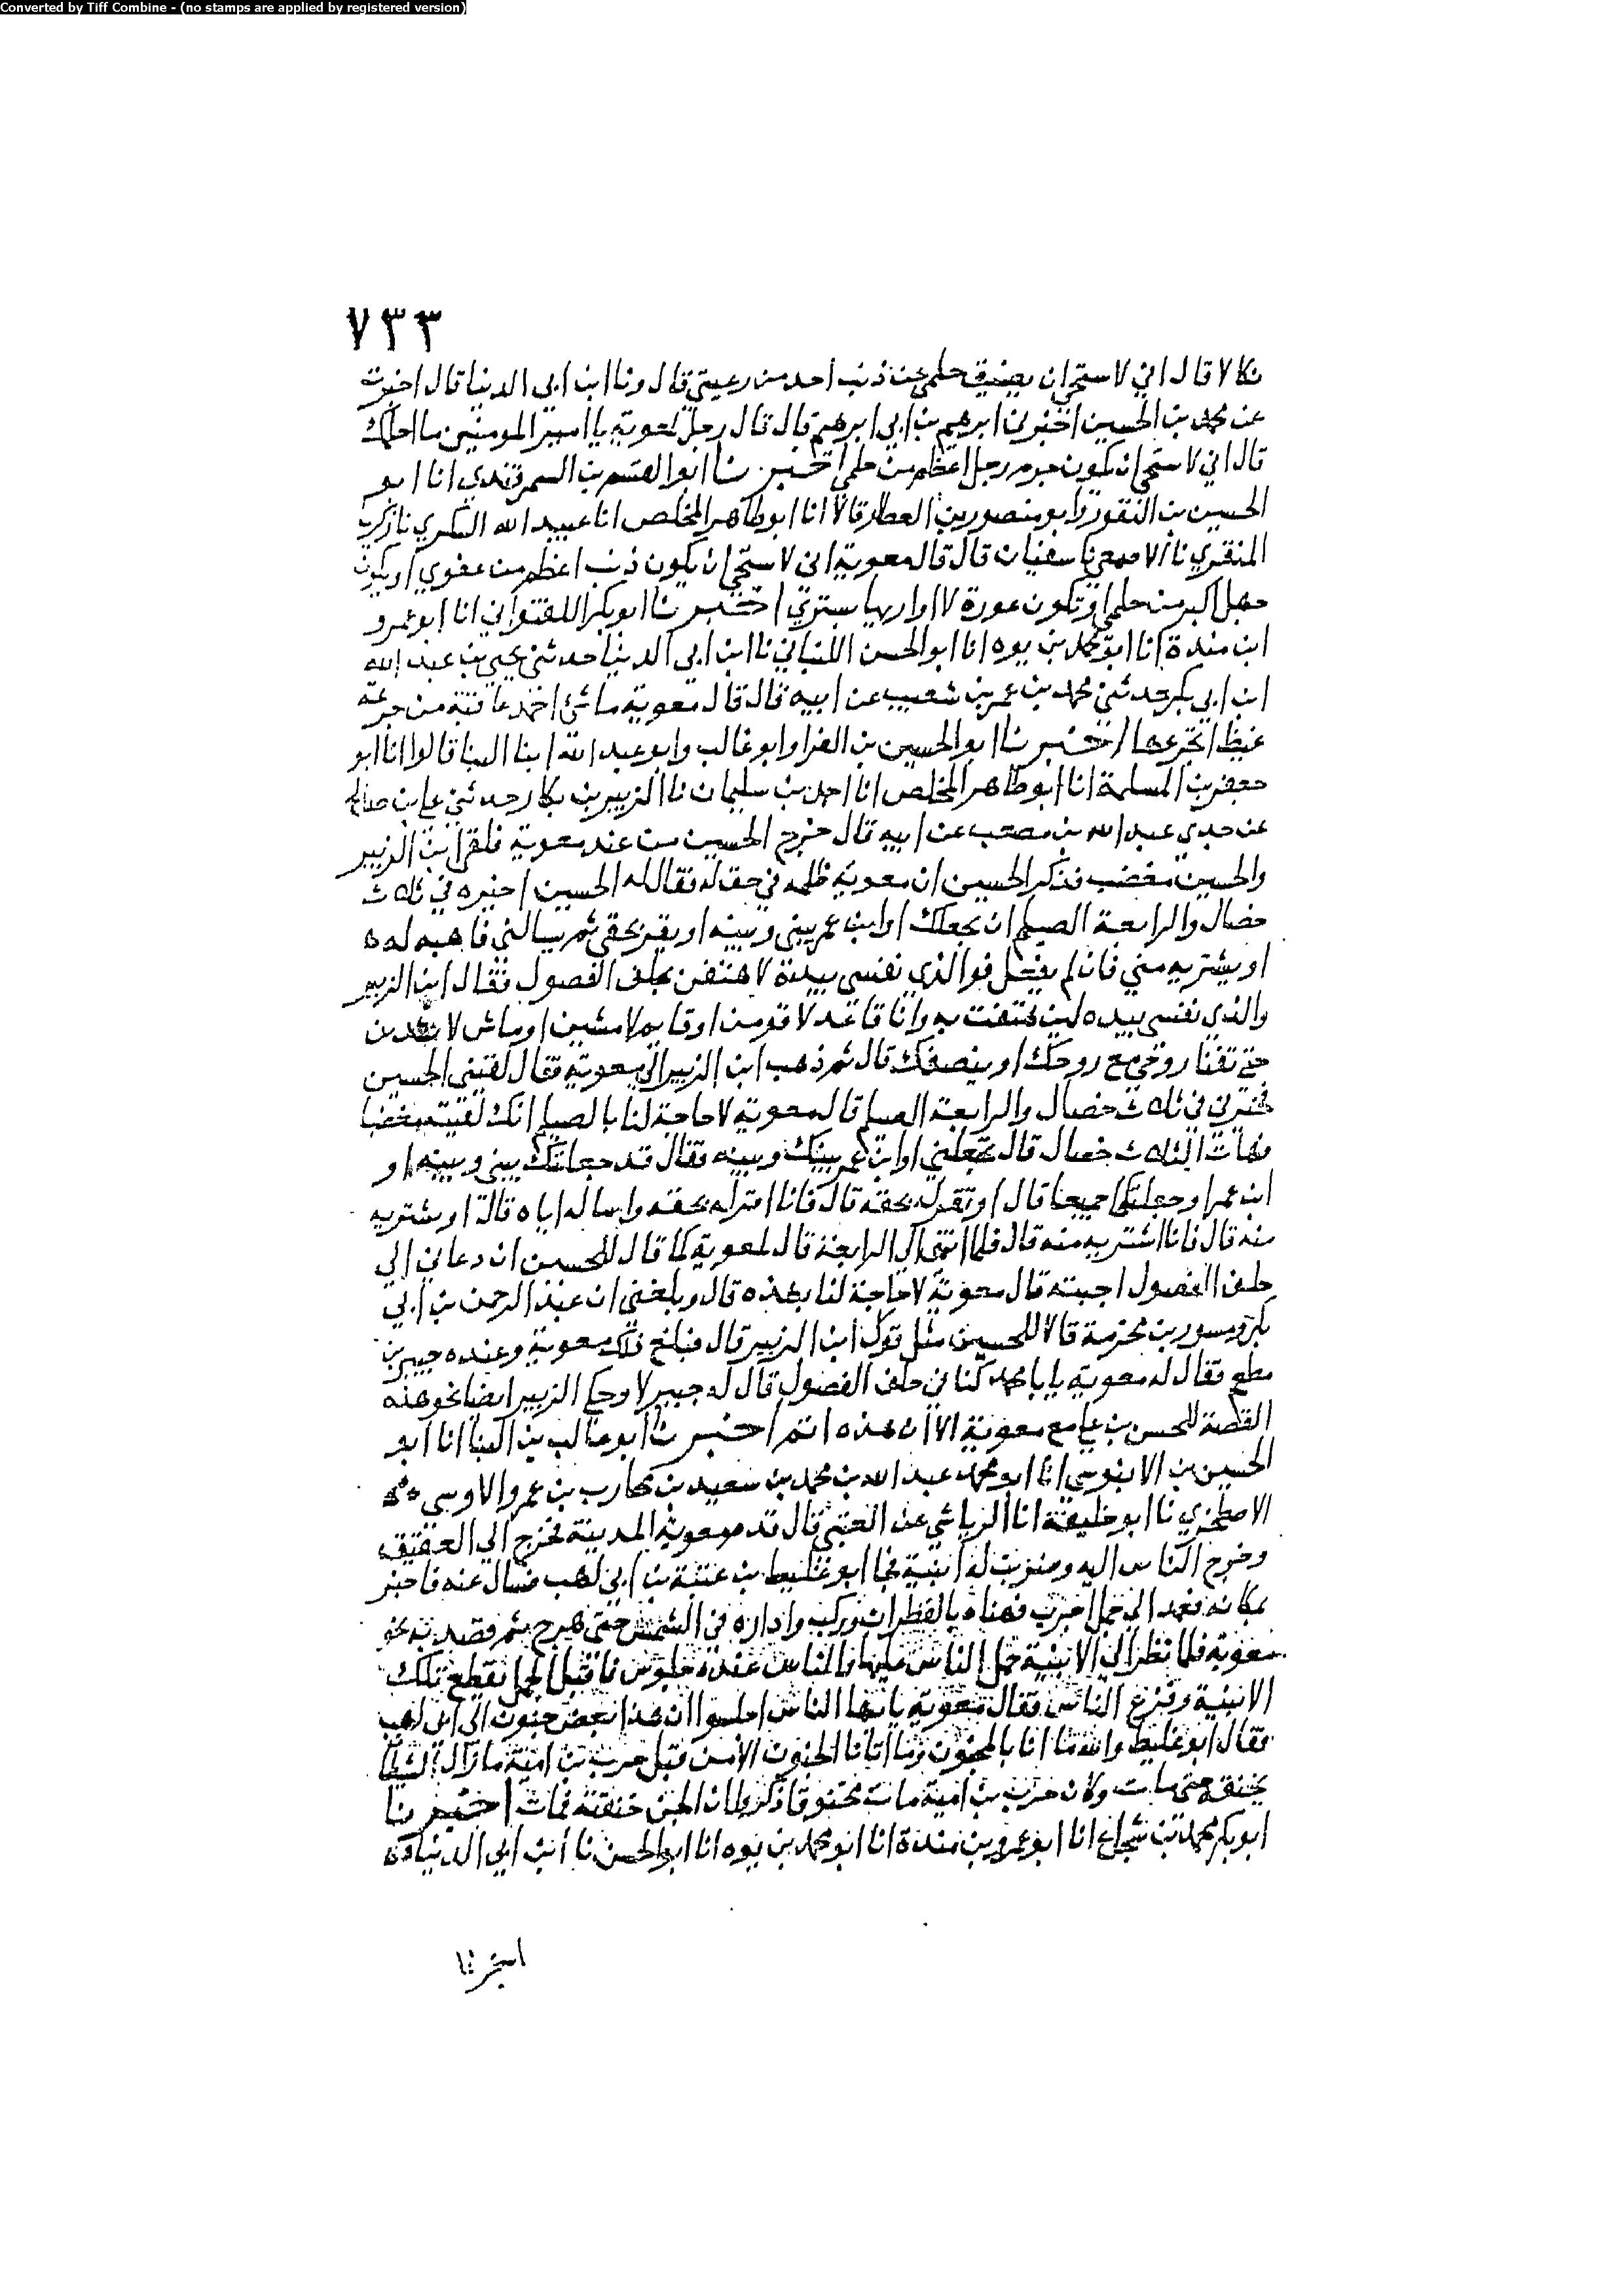 Converted by Tiff Combine - (no stamps are applied by registered version)
٧٣٣
نكالا قال اني لاستحي ان يضيق حلمي عن ذنب احد من رعيتي قال ونا ابن ابي الدنيا قال اخبرت
عن محمد بن الحسين اخبرني ابرهيم بن ابي ابرهيم قال قال رجل لمعوية يا امير المومنين ما احلمك
قال اني لاستحي ان يكون جرم رجل اعظم من حلمي اخبرنا ابو القسم بن السمرقندي انا ابو
الحسين بن النقور وابو منصور بن العطار قالا انا ابو طاهر المخلص انا عبيد الله السكري نا زكريا
المنقري نا الاصمعي نا سفيان قال قال معوية اني لاستحي ان يكون ذنب اعظم من عفوي او يكون
جهل اكبر من حلمي او تكون عورة لا اواريها بستري اخبرنا ابو بكر اللفتواني انا ابو عمرو
ابن مندة انا ابو محمد بن يوه انا ابو الحسن اللنباني نا ابن ابي الدنيا حدثني يحيى بن عبد الله
ابن ابي بكر حدثني محمد بن عمر بن شعيب عن ابيه قال قال معوية ما شئ احمد عاقبة من جرعة
غيظ اتجرعها اخبرنا ابو الحسين بن الفرا وابو غالب وابو عبد الله ابنا البنا قالوا انا ابو
جعفر بن المسلمة انا ابو طاهر المخلص انا احمد بن سليمان نا الزبير بن بكار حدثني علي بن صالح
عن جدي عبد الله بن مصعب عن ابيه قال خرج الحسين من عند معوية فلقي ابن الزبير
والحسين مغضب فذكر الحسين ان معوية ظلمه في حق له فقال له الحسين اخيره في ثلاث
خصال والرابعة الصيلم ان يجعلك او ابن عمر بيني وبينه او يقر بحقي ثم يسالني فاهبه له
او يشتريه مني فان لم يفعل فوالذي نفسي بيده لاهتفن بحلف الفصول فقال ابن الزبير
والذي نفسي بيده لين هتفت به وانا قاعد لاقومن او قايم لامشين او ماش لاشتدن
حتى تفنا روحي مع روحك او ينصفك قال ثم ذهب ابن الزبير الى معوية فقال لقيني الحسين
فخيرني في ثلاث خصال والرابعة الصيلم قال معوية لا حاجة لنا بالصيلم انك لقيته مغضبا
فهات الثلاث خصال قال تجعلني او ابن عمر بينك وبينه فقال قد جعلتك بيني وبينه او
ابن عمر او جعلتكما جميعا قال او تقر له بحقه قال فانا اقر له بحقه واساله اياه قال او تشتريه
منه قال فانا اشتريه منه قال فلما انتهى الى الرابعة قال لمعوية كما قال للحسين ان دعاني الى
حلف الفصول اجبته قال معوية لا حاجة لنا بهذه قال وبلغني ان عبد الرحمن بن ابي
بكر ومسور بن مخرمة قالا للحسين مثل قول ابن الزبير قال فبلغ ذلك معوية وعنده جبير بن
مطعم فقال له معوية يا با محمد كنا في حلف الفصول قال له جبير لا وحكى الزبير ايضا نحو هذه
القصة للحسن بن علي مع معوية الا ان هذه اتم اخبرنا ابو غالب بن البنا انا ابو
الحسين بن الابنوسي انا ابو محمد عبد الله بن محمد بن سعيد بن محارب بن عمرو الاوسي
الاصطخري نا ابو خليفة انا الرياشي عن العتبي قال قدم معوية المدينة فخرج الى العقيق
وخرج الناس اليه وضربت له ابنية فجا ابو غليط بن عتبة بن ابي لهب فسال عنه فاخبر
بمكانه فعمد الى جمل اجرب فهناه بالقطران وركب واداره في الشمس حتى هرج ثم قصد به نحو
معوية فلما نظر الى الابنية حمل الناس عليها والناس عنده جلوس فاقبل الجمل يقطع تلك
الابنية وفزع الناس فقال معوية يايها الناس اجلسوا ان هذا بعض جنون ال ابي لهب
فقال ابو غليط والله ما انا بالمجنون وما اتانا الجنون الا من قبل حرب بن امية ما زال الشيطان
يخنقه حتى مات وكان حرب بن امية مات مخنوقا ذكروا ان الجن خنقته فمات اخبرنا
ابو بكر محمد بن شجاع انا ابو عمرو بن مندة انا ابو محمد بن يوه انا ابو الحسن نا ابن ابي الدنيا
اخبرنا